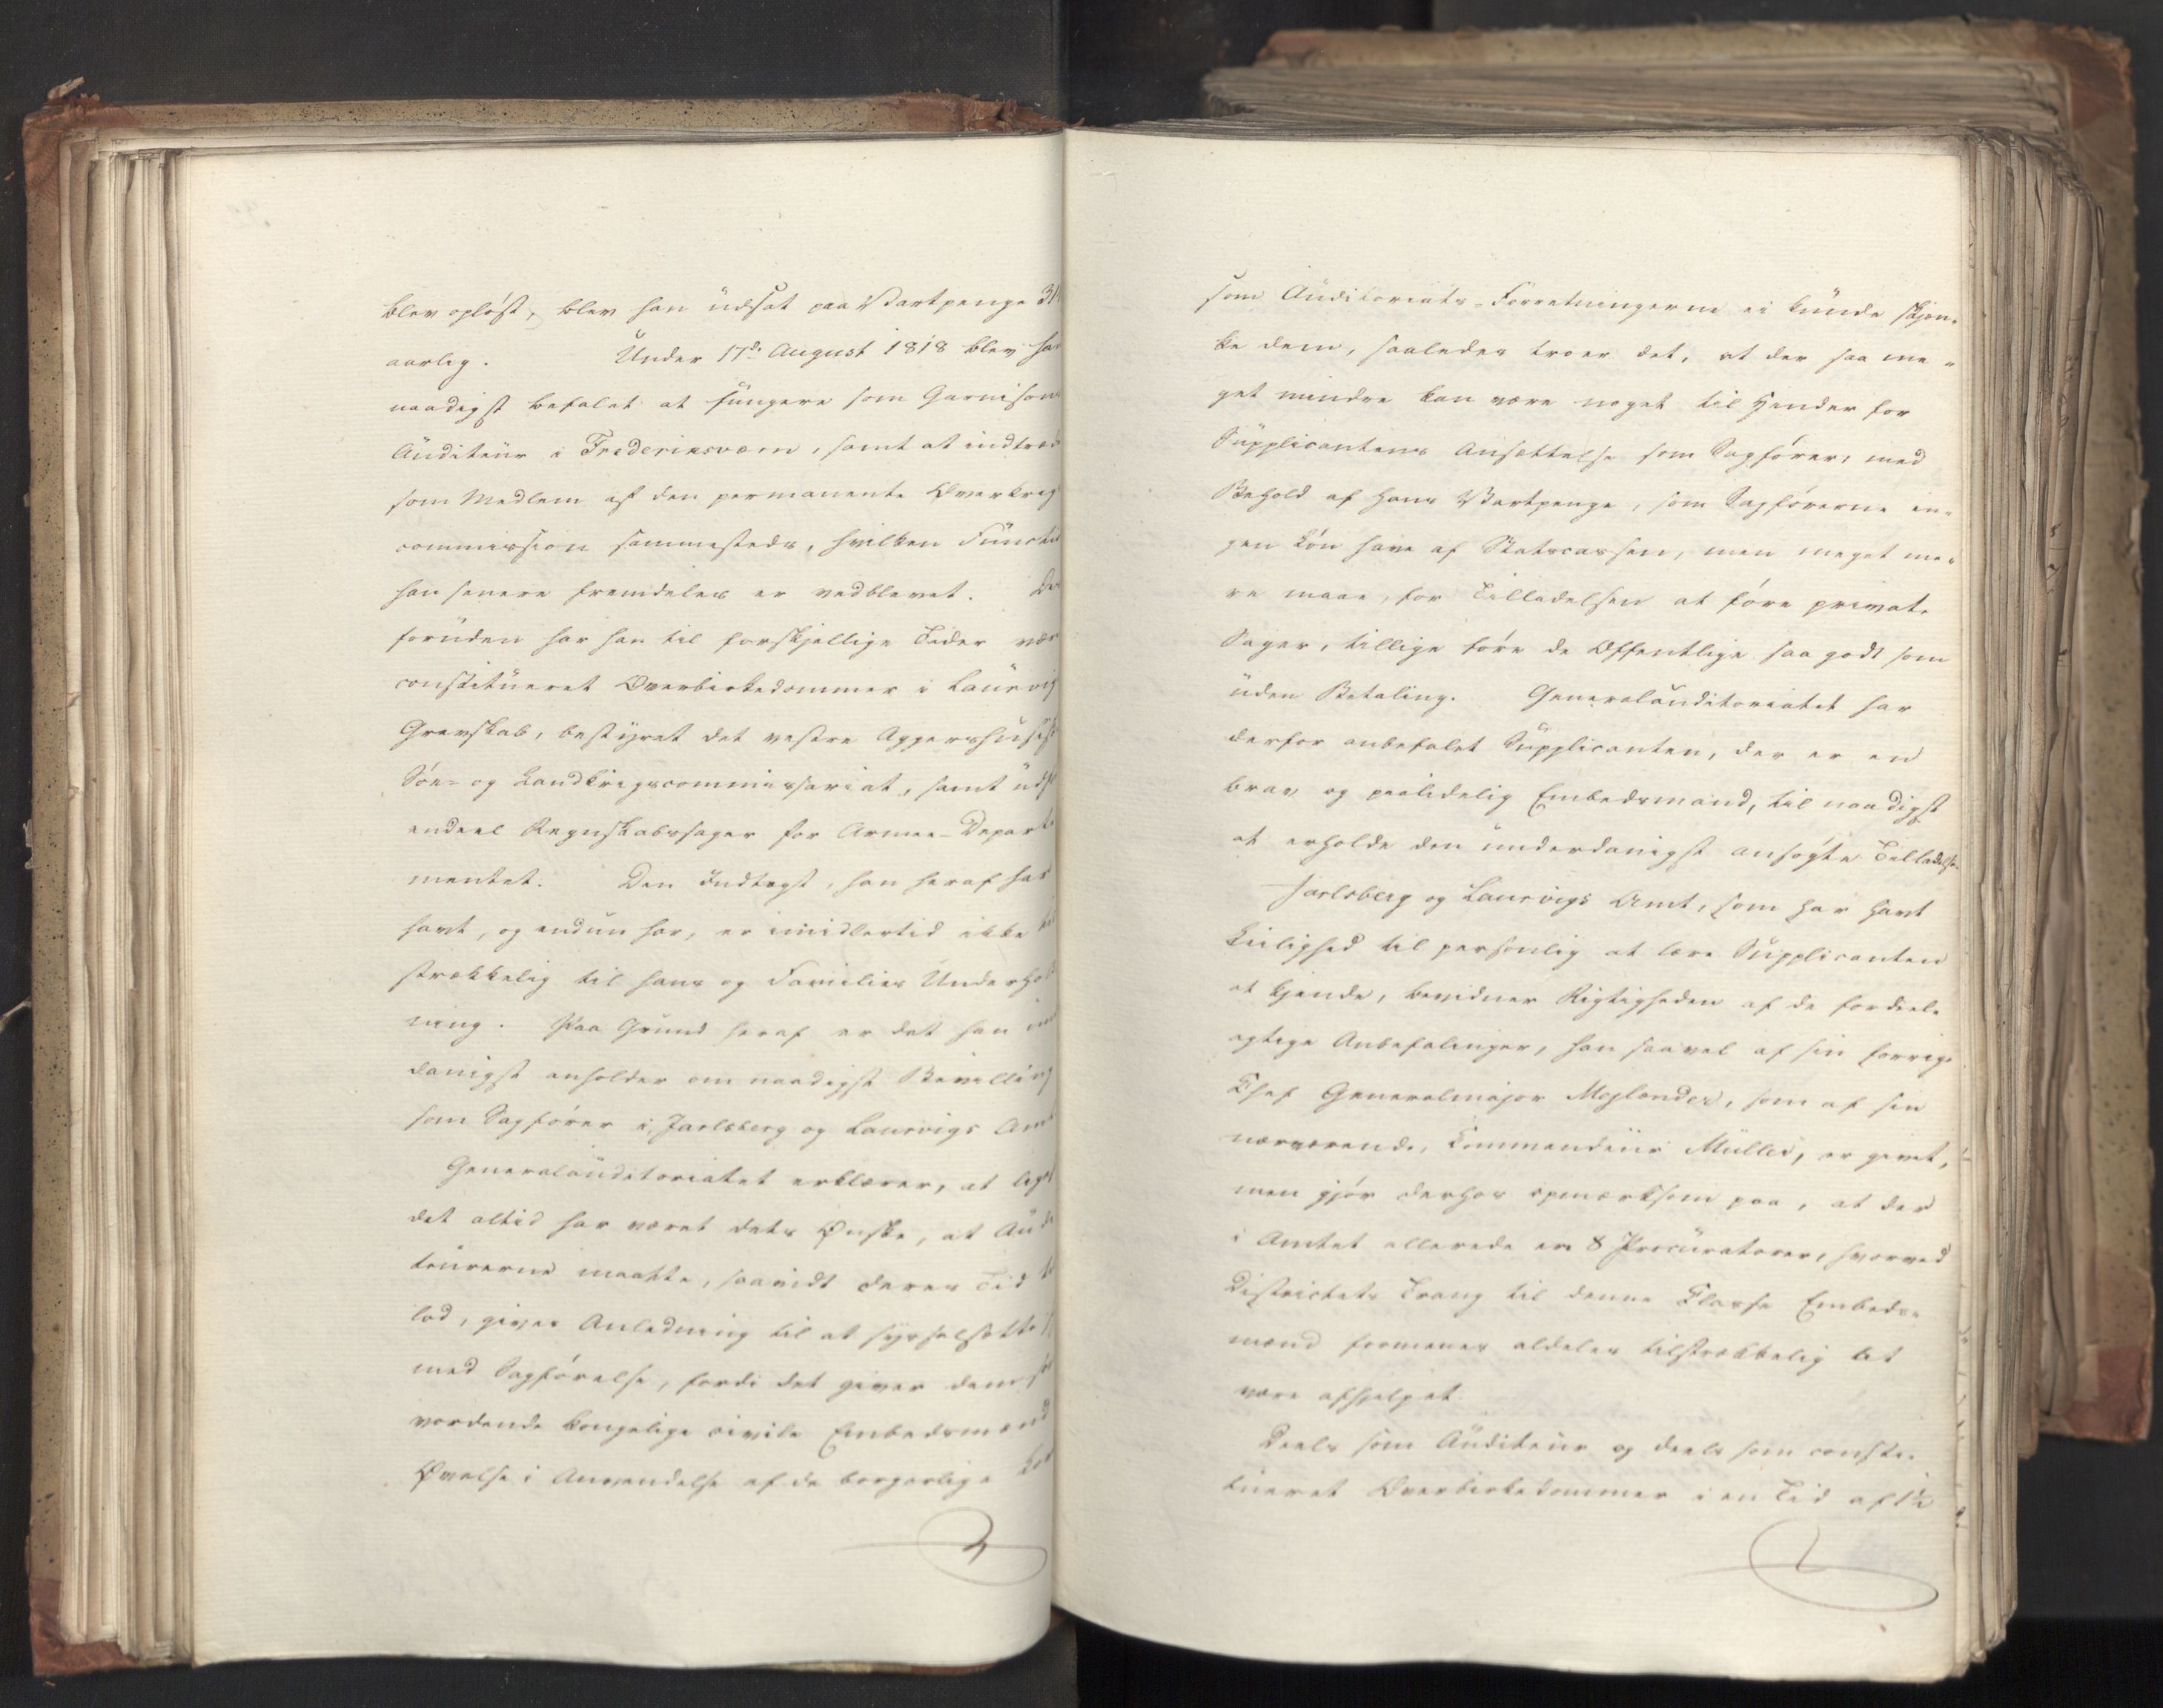 blev opløst, blev han udsat paa Vartpenge
aarlig. Under 17de August 1818 blev han
naadigst befalet at fungere som Garnisons
Auditeur i Frederiksværn, samt at indtræde
som Medlem af den permanente Overkrigs
commission sammesteds, hvilken Function
han senere fremdeles er vedblevet. Des
foruden har han til forskjellige Tider vær
constitueret Overbirkedommer i Laurvig
Grevskab, bestyret det vestre Aggershusiske
Søe- og Landkrigscommissariat, samt
endeel Regnskabssager for Armee-Departe
mentet. Den Indtægt, han heraf har
havt, og endnu har, er imidlertid ikke til
strækkelig til hans og Families Underhold
ning. Paa Grund heraf er det han un
danigst anholder om naadigst Bevilling
som Sagfører i Jarlsberg og Laurvigs Amt
Generalauditoriatet erklærer, at ligesom
det altid har været dets Ønske, at Audi
teurerne maatte, saavidt deres Tid til
lod, gives Anledning til at sysselsætte
med Sagførelse, fordi det giver dem som
vordende kongelige civile Embedsmænd
Øvelse i Anvendelse af de borgerlige Love
som Auditoriats-Forretningerne ei kunde skjæn-
ke dem, saaledes troer det, at der saa me-
get mindre kan være noget til Hinder for
Supplicantens Ansættelse som Sagfører, med
Behold af hans Vartpenge, som Sagførerne in-
gen Løn have af Statscassen, men meget me-
re maae, for Tilladelsen at føre private
Sager, tillige føre de Offentlige saa godt som
uden Betaling. Generalauditoriatet har
derfor anbefalet Supplicanten, der er en
brav og paalidelig Embedsmand, til naadigst
at erholde den underdanigst ansøgte Tilladelse.
Jarlsberg og Laurvigs Amt, som har havt
Leilighed til personlig at lære Supplicanten
at kjende, bevidner Rigtigheden af de fordeel-
agtige Anbefalinger, han saavel af sin forrige
Chef Generalmajor Mejlænder, som af sin
nærværende, Commandeur Müller, er givet,
men gjør derhos opmærksom paa, at der
i Amtet allerede ere 8 Procuratorer, hvorved
Districtets Trang til denne Classe Embeds-
mænd formenes aldeles tilstrækkelig at
være afhjelpet.
Deels som Auditeur og deels som consti-
tueret Overbirkedommer i en Tid af 1½